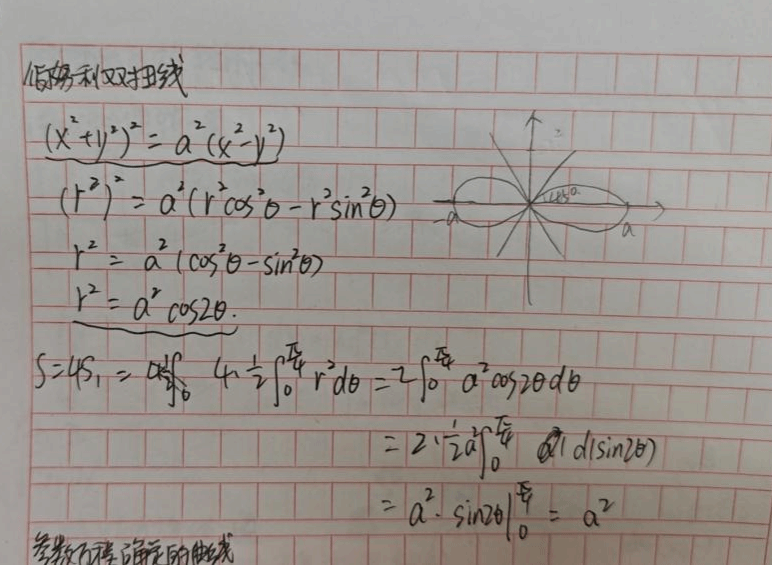 伯努利双扭线
(x²+y²)² = a²(x²-y²)
(r²)² = a²(r²cos²θ - r²sin²θ)
r² = a²(cos²θ - sin²θ)
r² = a²cos2θ.
45°
-a
a
S=4S₁ = 4·½∫₀^{π/4} r²dθ = 2∫₀^{π/4} a²cos2θdθ
= 2·½a²∫₀^{π/4} d(sin2θ)
= a²·sin2θ|₀^{π/4} = a²
参数方程确定的曲线